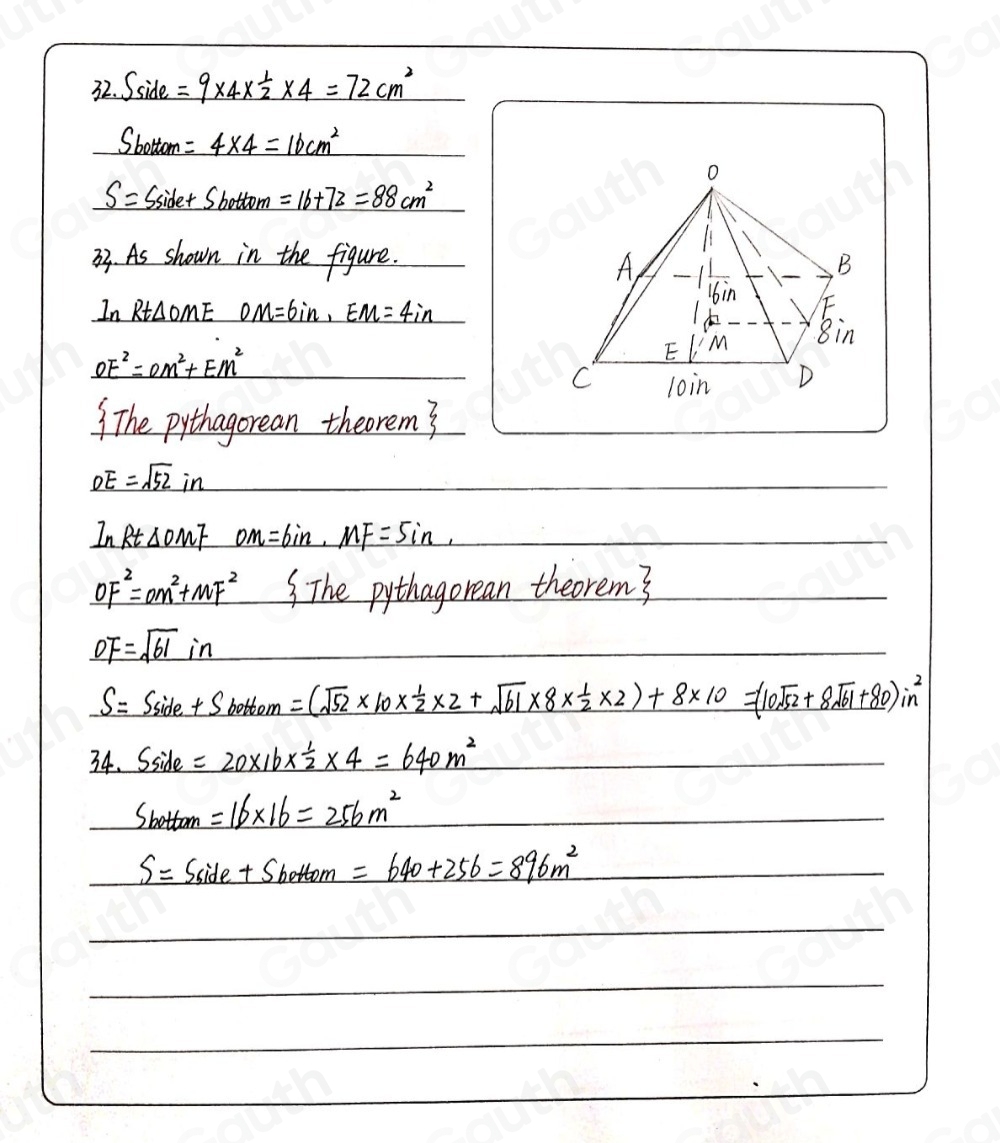 32. Sside = 9×4×½×4 = 72cm²
Sbottom = 4×4 = 16cm²
S = Sside + Sbottom = 16+72 = 88cm²
33. As shown in the figure.
In Rt△OME OM=6in, EM=4in
OE² = OM² + EM²
{The pythagorean theorem}
OE = √52 in
In Rt△OMF OM=6in, MF=5in,
OF² = OM² + MF² {The pythagorean theorem}
OF = √61 in
S = Sside + Sbottom = (√52×10×½×2 + √61×8×½×2) + 8×10 = (10√52 + 8√61 + 80) in²
34. Sside = 20×16×½×4 = 640m²
Sbottom = 16×16 = 256m²
S = Sside + Sbottom = 640+256 = 896m²
O
A
B
6in
F
8in
E
M
C
D
10in
Gauth